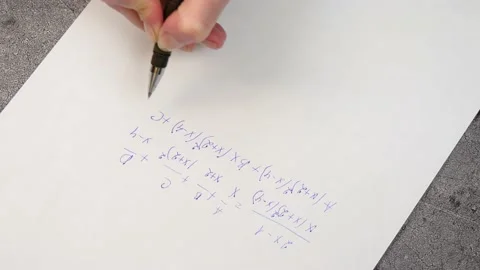 2x-1/x(x+2)²(x-4) = A/x + B/x+2 + C/(x+2)² + D/x-4
A(x+2)²(x-4)+Bx(x+2)(x-4)+C